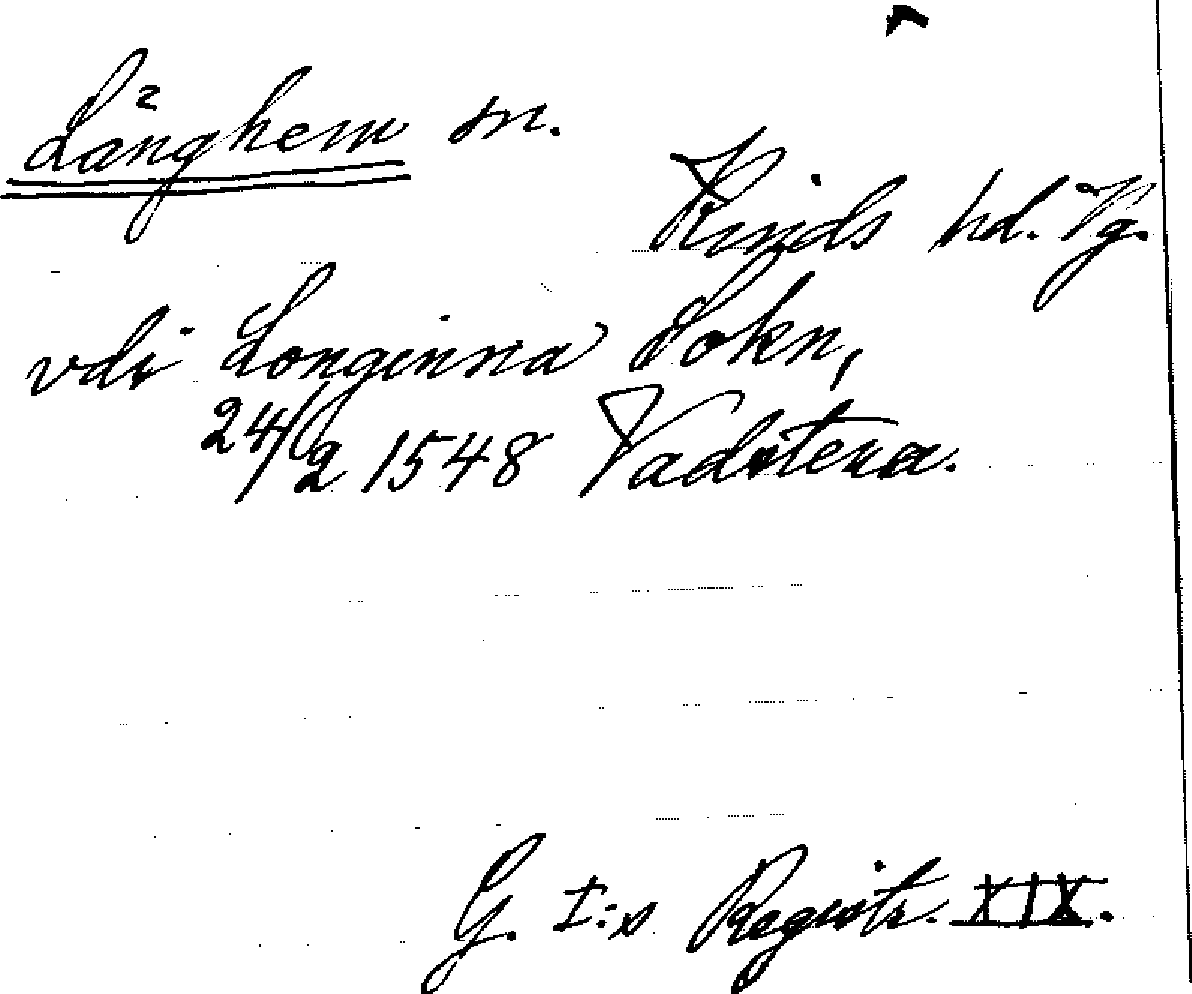 Länghem sn.
Kinds hd. Vg.
vdi Longinna Sokn,
24/2 1548 Vadstena.
G. I:s Registr. XIX.